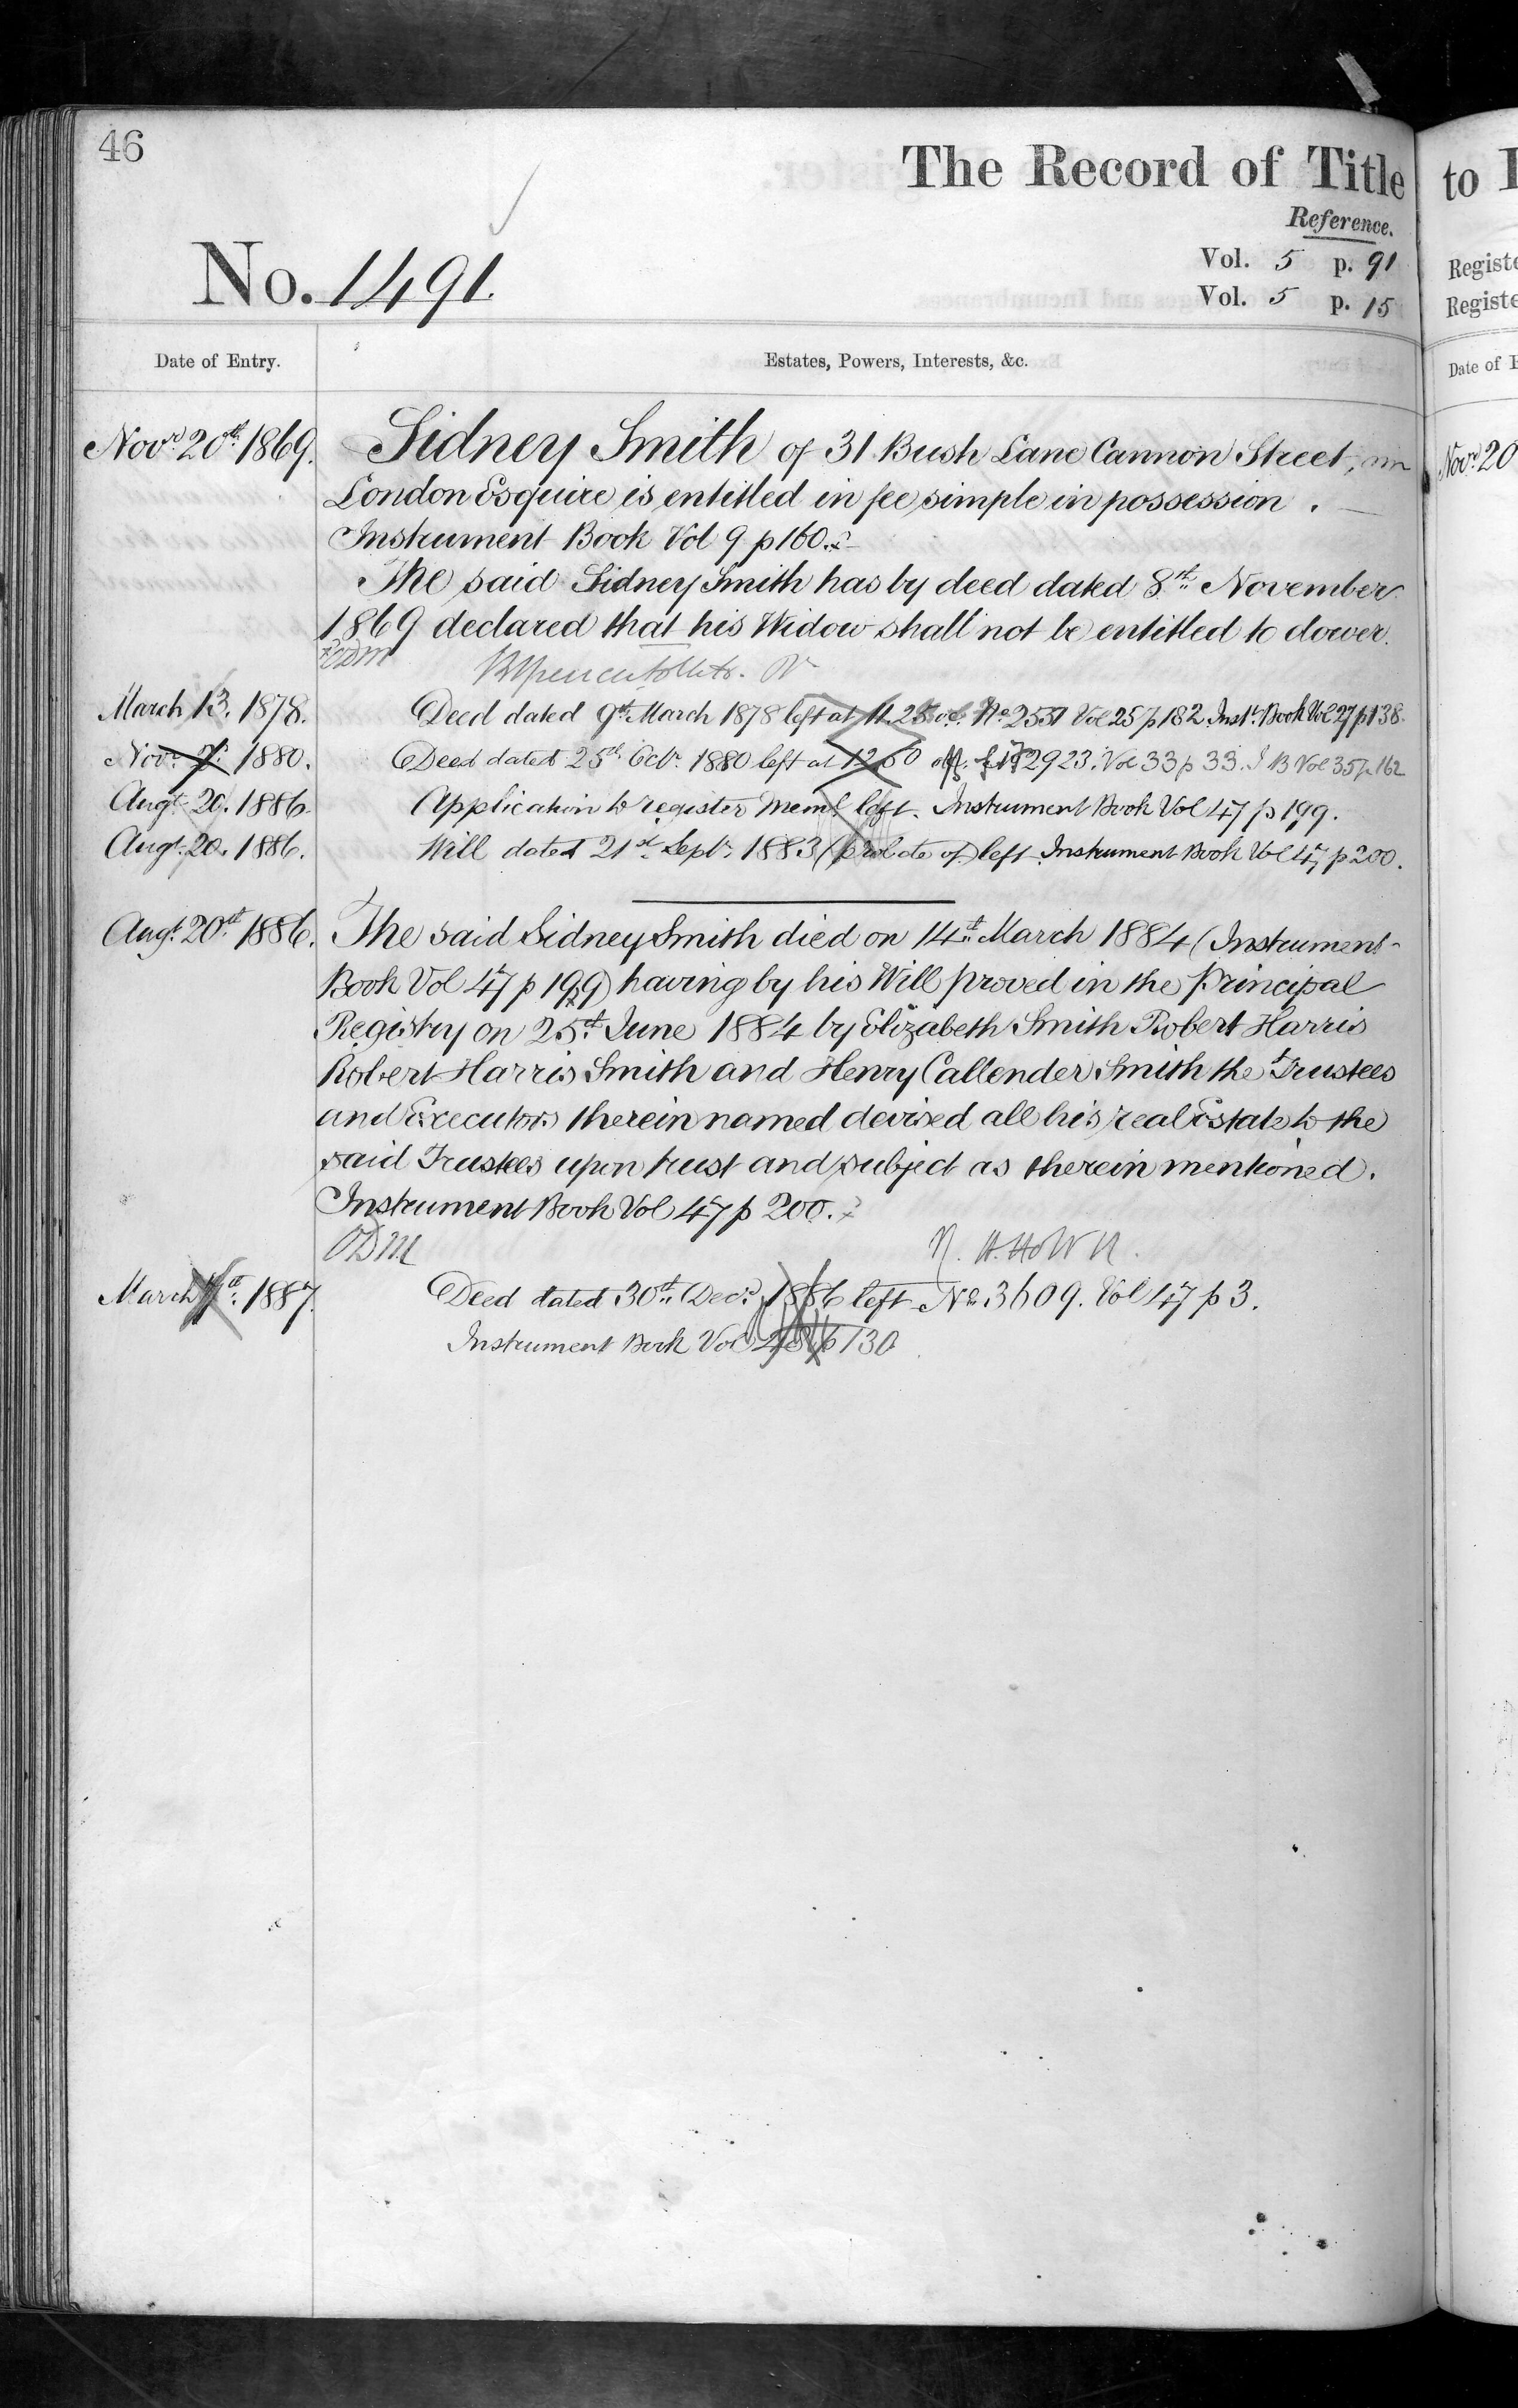 46
The Record of Title
to
Reference.
Vol. 5 p. 91
Vol. 5 p. 15
No. 1491.
Date of Entry.
Estates, Powers, Interests, &c.
Novr. 20th 1869. Sidney Smith of 31 Bush Lane Cannon Street, in
London Esquire is entitled in fee simple in possession.
Instrument Book Vol 9 p 160.
The said Sidney Smith has by deed dated 8th November
1869 declared that his Widow shall not be entitled to dower.
ODM
March 13. 1878. Deed dated 9th March 1878 left at 11.25 o.c. No 2551 Vol 25 p 182 Inst. Book Vol 27 p 138.
Novr. 1880. Deed dated 25th Octr. 1880 left at 2923. Vol 33 p 33. I B Vol 35 p. 162
Augt. 20. 1886. Application to register left. Instrument Book Vol 47 p 199.
Augt. 20. 1886. Will dated 21st Septr. 1883 (probate of) left Instrument Book Vol 47 p 200.
Augt. 20th 1886. The said Sidney Smith died on 14th March 1884 (Instrument
Book Vol 47 p 199) having by his Will proved in the Principal
Registry on 25th June 1884 by Elizabeth Smith Robert Harris
Robert Harris Smith and Henry Callender Smith the Trustees
and Executors therein named devised all his real Estate to the
said Trustees upon trust and subject as therein mentioned.
Instrument Book Vol 47 p 200.
ODM
March 1887. Deed dated 30th Decr. 1886 left No 3609. Vol 47 p 3.
Instrument Book Vol 48 p 130
Registe
Registe
Date of E
Novr. 20